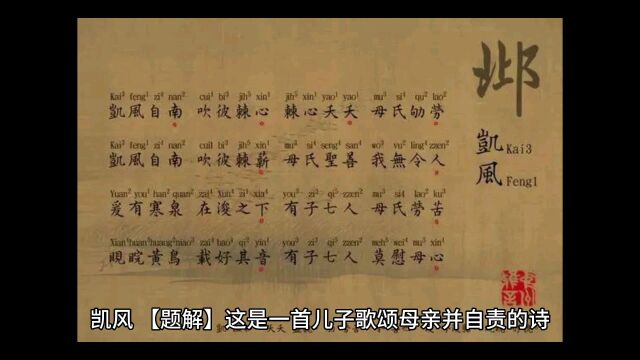 邶
凱 Kai3
風 Feng1
Kai3 feng1 zi4 nan2 cui1 bi3 jih5 xin1 jih5 xin1 yao1 yao1 mu3 si4 qu2 lao2
凱風自南 吹彼棘心 棘心夭夭 母氏劬勞
Kai3 feng1 zi4 nan2 cui1 bi3 jih5 xin1 mu3 si4 seng4 san4 wo3 vu2 ling4 zzen2
凱風自南 吹彼棘薪 母氏聖善 我無令人
Yuan2 you3 han2 quan2 zai4 zi1 xia4 you3 zi3 qi5 zzen2 mu3 si4 lao2 ku3
爰有寒泉 在浚之下 有子七人 母氏勞苦
Xian4 huan3 huang2 zai4 hao3 qi2 yin1 you3 zi3 qi5 zzen2 meh5 wei4 mu3 xin1
睍睆黃鳥 載好其音 有子七人 莫慰母心
凯风 【题解】这是一首儿子歌颂母亲并自责的诗